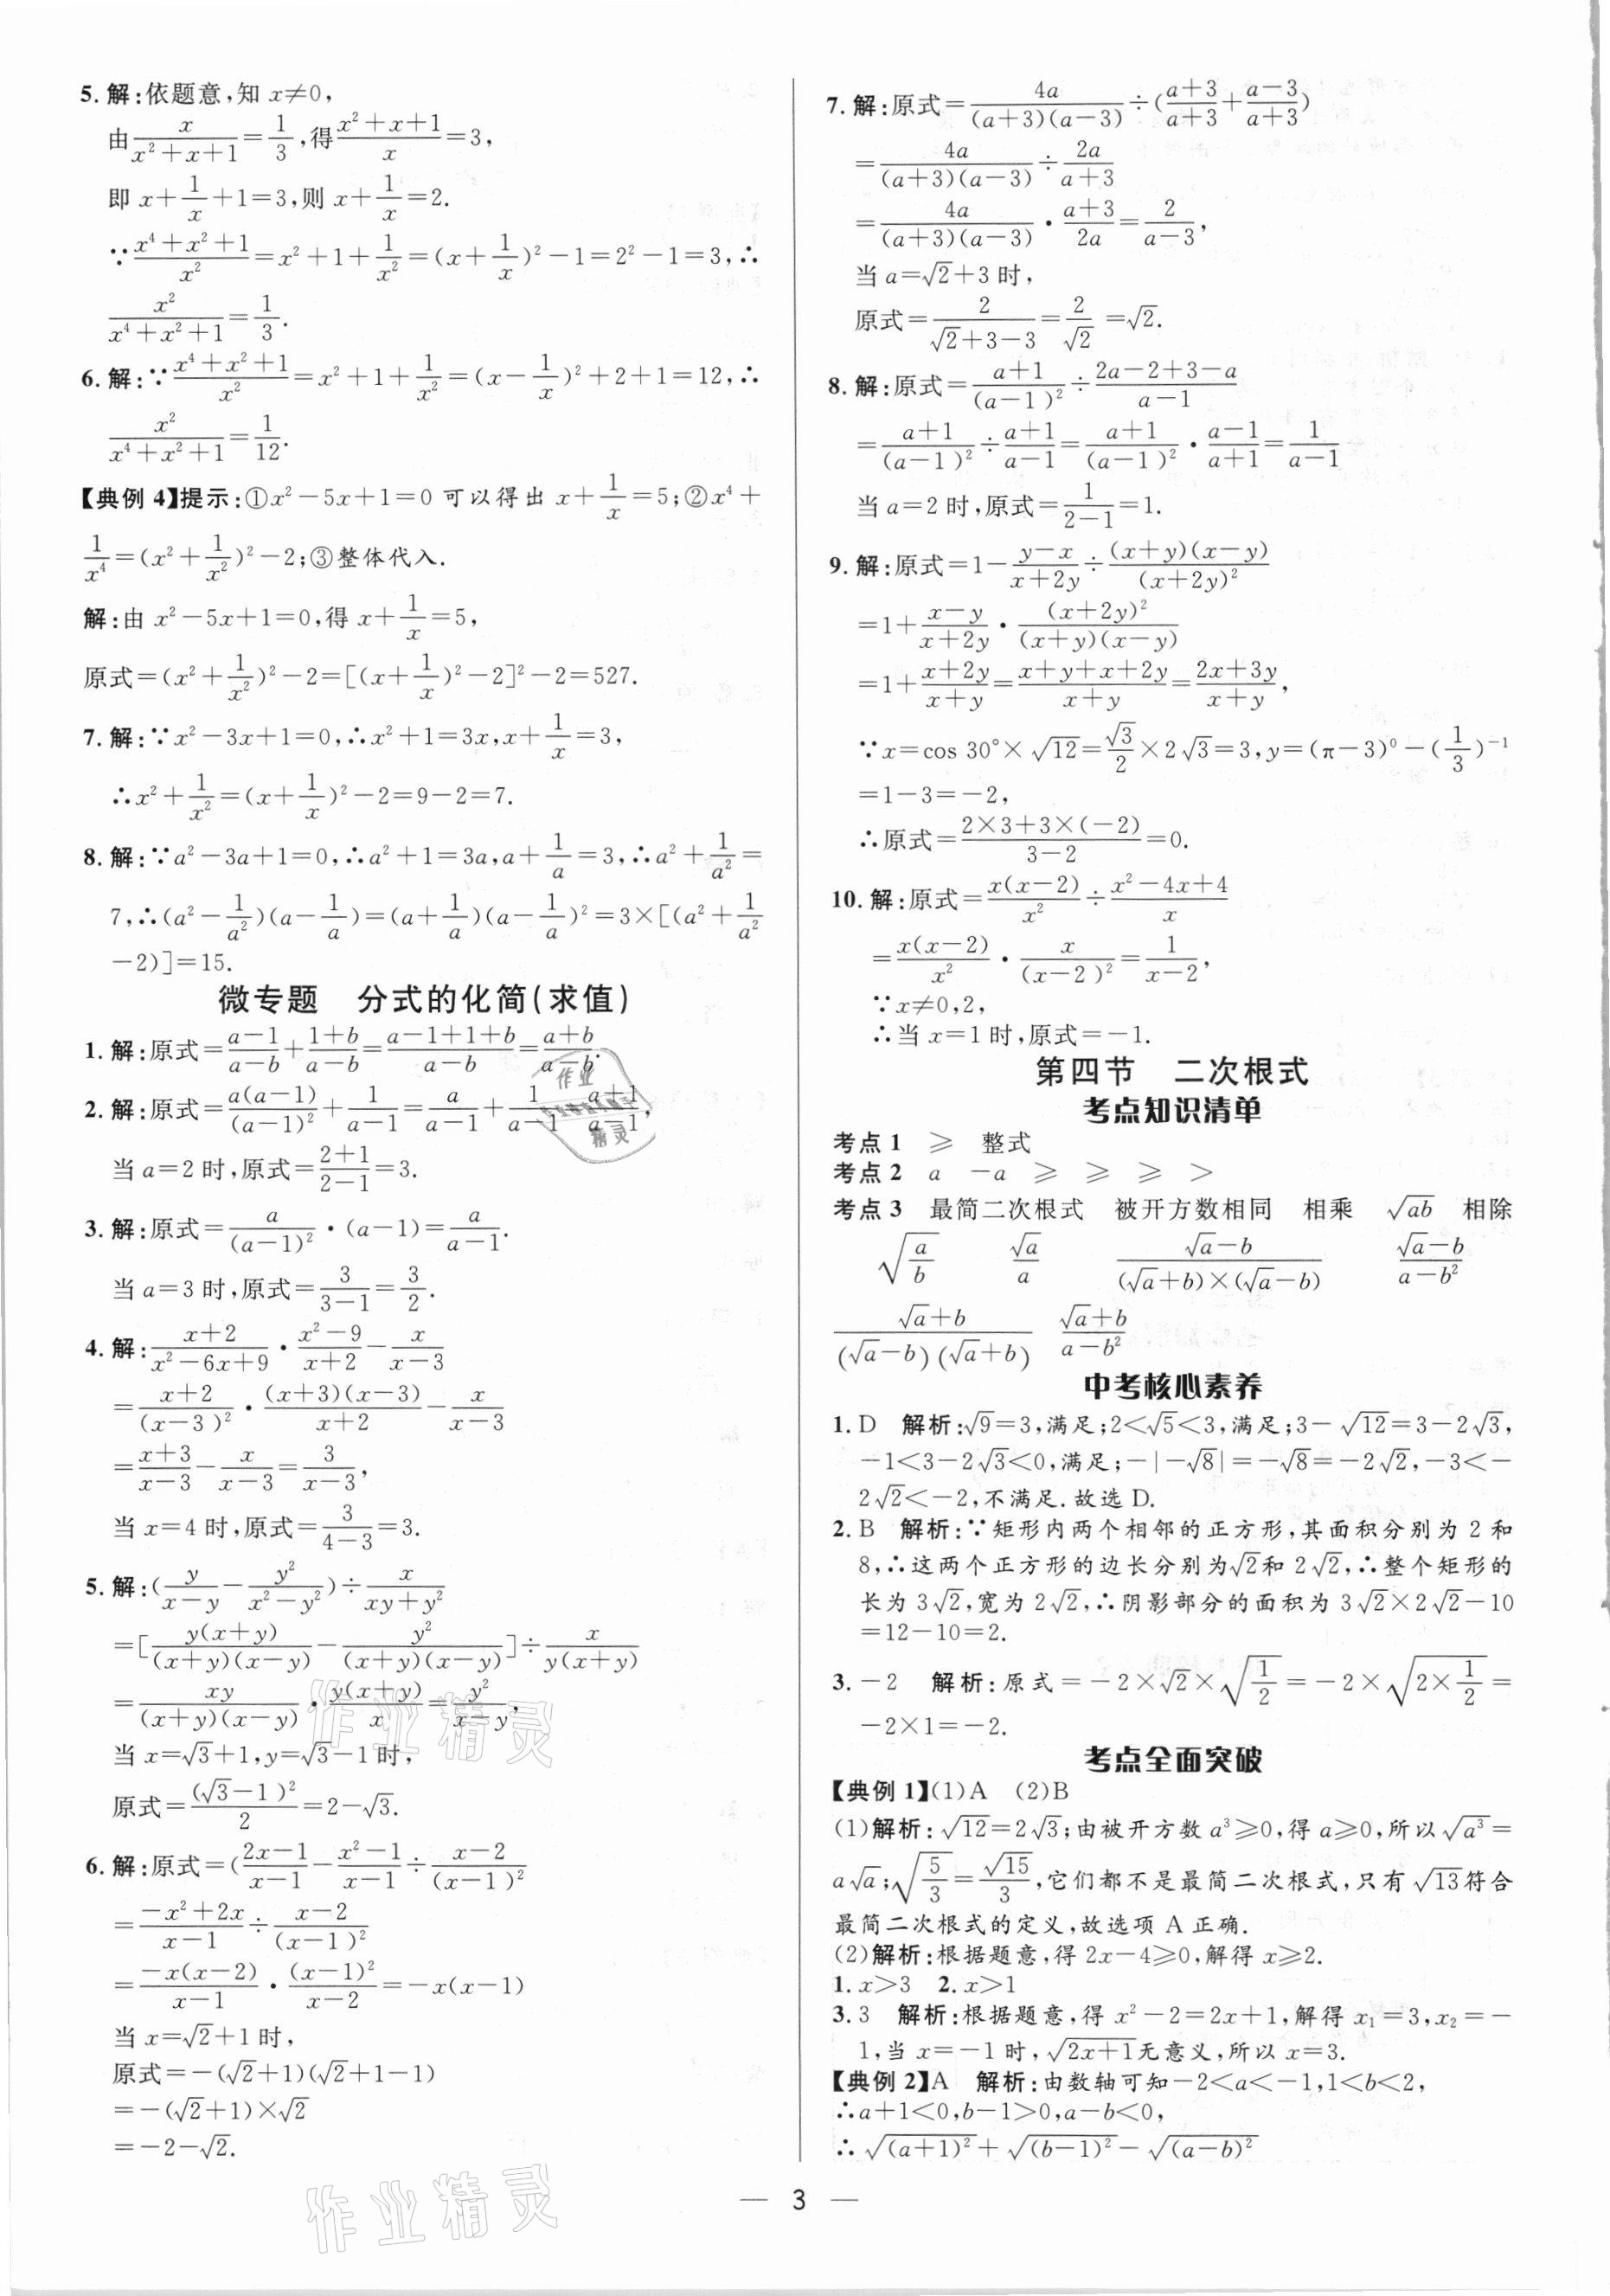 5. 解:依题意,知 x≠0,
由 x/(x²+x+1)=1/3,得(x²+x+1)/x=3,
即 x+1/x+1=3,则 x+1/x=2.
∵(x⁴+x²+1)/x²=x²+1+1/x²=(x+1/x)²-1=2²-1=3,∴
x²/(x⁴+x²+1)=1/3.
6. 解:∵(x⁴+x²+1)/x²=x²+1+1/x²=(x-1/x)²+2+1=12,∴
x²/(x⁴+x²+1)=1/12.
【典例 4】提示:①x²-5x+1=0 可以得出 x+1/x=5;②x⁴+
1/x⁴=(x²+1/x²)²-2;③整体代入.
解:由 x²-5x+1=0,得 x+1/x=5,
原式=(x²+1/x²)²-2=[(x+1/x)²-2]²-2=527.
7. 解:∵x²-3x+1=0,∴x²+1=3x,x+1/x=3,
∴x²+1/x²=(x+1/x)²-2=9-2=7.
8. 解:∵a²-3a+1=0,∴a²+1=3a,a+1/a=3,∴a²+1/a²=
7,∴(a²-1/a²)(a-1/a)=(a+1/a)(a-1/a)²=3×[(a²+1/a²
-2)]=15.
微专题 分式的化简(求值)
1. 解:原式=(a-1)/(a-b)+(1+b)/(a-b)=(a-1+1+b)/(a-b)=(a+b)/(a-b).
2. 解:原式=a(a-1)/(a-1)²+1/(a-1)=a/(a-1)+1/(a-1)=(a+1)/(a-1),
当 a=2 时,原式=(2+1)/(2-1)=3.
3. 解:原式=a/(a-1)²·(a-1)=a/(a-1).
当 a=3 时,原式=3/(3-1)=3/2.
4. 解:(x+2)/(x²-6x+9)·(x²-9)/(x+2)-x/(x-3)
=(x+2)/(x-3)²·(x+3)(x-3)/(x+2)-x/(x-3)
=(x+3)/(x-3)-x/(x-3)=3/(x-3),
当 x=4 时,原式=3/(4-3)=3.
5. 解:(y/(x-y)-y²/(x²-y²))÷x/(xy+y²)
=[y(x+y)/(x+y)(x-y)-y²/(x+y)(x-y)]÷x/y(x+y)
=xy/(x+y)(x-y)·y(x+y)/x=y²/(x-y),
当 x=√3+1,y=√3-1 时,
原式=(√3-1)²/2=2-√3.
6. 解:原式=((2x-1)/(x-1)-(x²-1)/(x-1)÷(x-2)/(x-1)²
=(-x²+2x)/(x-1)÷(x-2)/(x-1)²
=-x(x-2)/(x-1)·(x-1)²/(x-2)=-x(x-1)
当 x=√2+1 时,
原式=-(√2+1)(√2+1-1)
=-(√2+1)×√2
=-2-√2.
7. 解:原式=4a/(a+3)(a-3)÷((a+3)/(a+3)+(a-3)/(a+3))
=4a/(a+3)(a-3)÷2a/(a+3)
=4a/(a+3)(a-3)·(a+3)/2a=2/(a-3),
当 a=√2+3 时,
原式=2/(√2+3-3)=2/√2=√2.
8. 解:原式=(a+1)/(a-1)²÷(2a-2+3-a)/(a-1)
=(a+1)/(a-1)²÷(a+1)/(a-1)=(a+1)/(a-1)²·(a-1)/(a+1)=1/(a-1)
当 a=2 时,原式=1/(2-1)=1.
9. 解:原式=1-(y-x)/(x+2y)÷(x+y)(x-y)/(x+2y)²
=1+(x-y)/(x+2y)·(x+2y)²/(x+y)(x-y)
=1+(x+2y)/(x+y)=(x+y+x+2y)/(x+y)=(2x+3y)/(x+y),
∵x=cos 30°×√12=√3/2×2√3=3,y=(π-3)⁰-(1/3)⁻¹
=1-3=-2,
∴原式=(2×3+3×(-2))/(3-2)=0.
10. 解:原式=x(x-2)/x²÷(x²-4x+4)/x
=x(x-2)/x²·x/(x-2)²=1/(x-2),
∵x≠0,2,
∴当 x=1 时,原式=-1.
第四节 二次根式
考点知识清单
考点 1 ≥ 整式
考点 2 a -a ≥ ≥ ≥ >
考点 3 最简二次根式 被开方数相同 相乘 √ab 相除
√(a/b) √a/a (√a-b)/(√a+b)×(√a-b) (√a-b)/(a-b²)
(√a+b)/(√a-b)(√a+b) (√a+b)/(a-b²)
中考核心素养
1. D 解析:√9=3,满足;2<√5<3,满足;3-√12=3-2√3,
-1<3-2√3<0,满足;-|-√8|=-√8=-2√2,-3<-
2√2<-2,不满足.故选 D.
2. B 解析:∵矩形内两个相邻的正方形,其面积分别为 2 和
8,∴这两个正方形的边长分别为√2和 2√2,∴整个矩形的
长为 3√2,宽为 2√2,∴阴影部分的面积为 3√2×2√2-10
=12-10=2.
3. -2 解析:原式=-2×√2×√(1/2)=-2×√(2×1/2)=
-2×1=-2.
考点全面突破
【典例 1】(1)A (2)B
(1)解析:√12=2√3;由被开方数 a³≥0,得 a≥0,所以√a³=
a√a;√(5/3)=√15/3,它们都不是最简二次根式,只有√13符合
最简二次根式的定义,故选项 A 正确.
(2)解析:根据题意,得 2x-4≥0,解得 x≥2.
1. x>3 2. x>1
3. 3 解析:根据题意,得 x²-2=2x+1,解得 x₁=3,x₂=-
1,当 x=-1 时,√(2x+1)无意义,所以 x=3.
【典例 2】A 解析:由数轴可知-2<a<-1,1<b<2,
∴a+1<0,b-1>0,a-b<0,
∴√(a+1)²+√(b-1)²-√(a-b)²
— 3 —
作业精灵
作业精灵